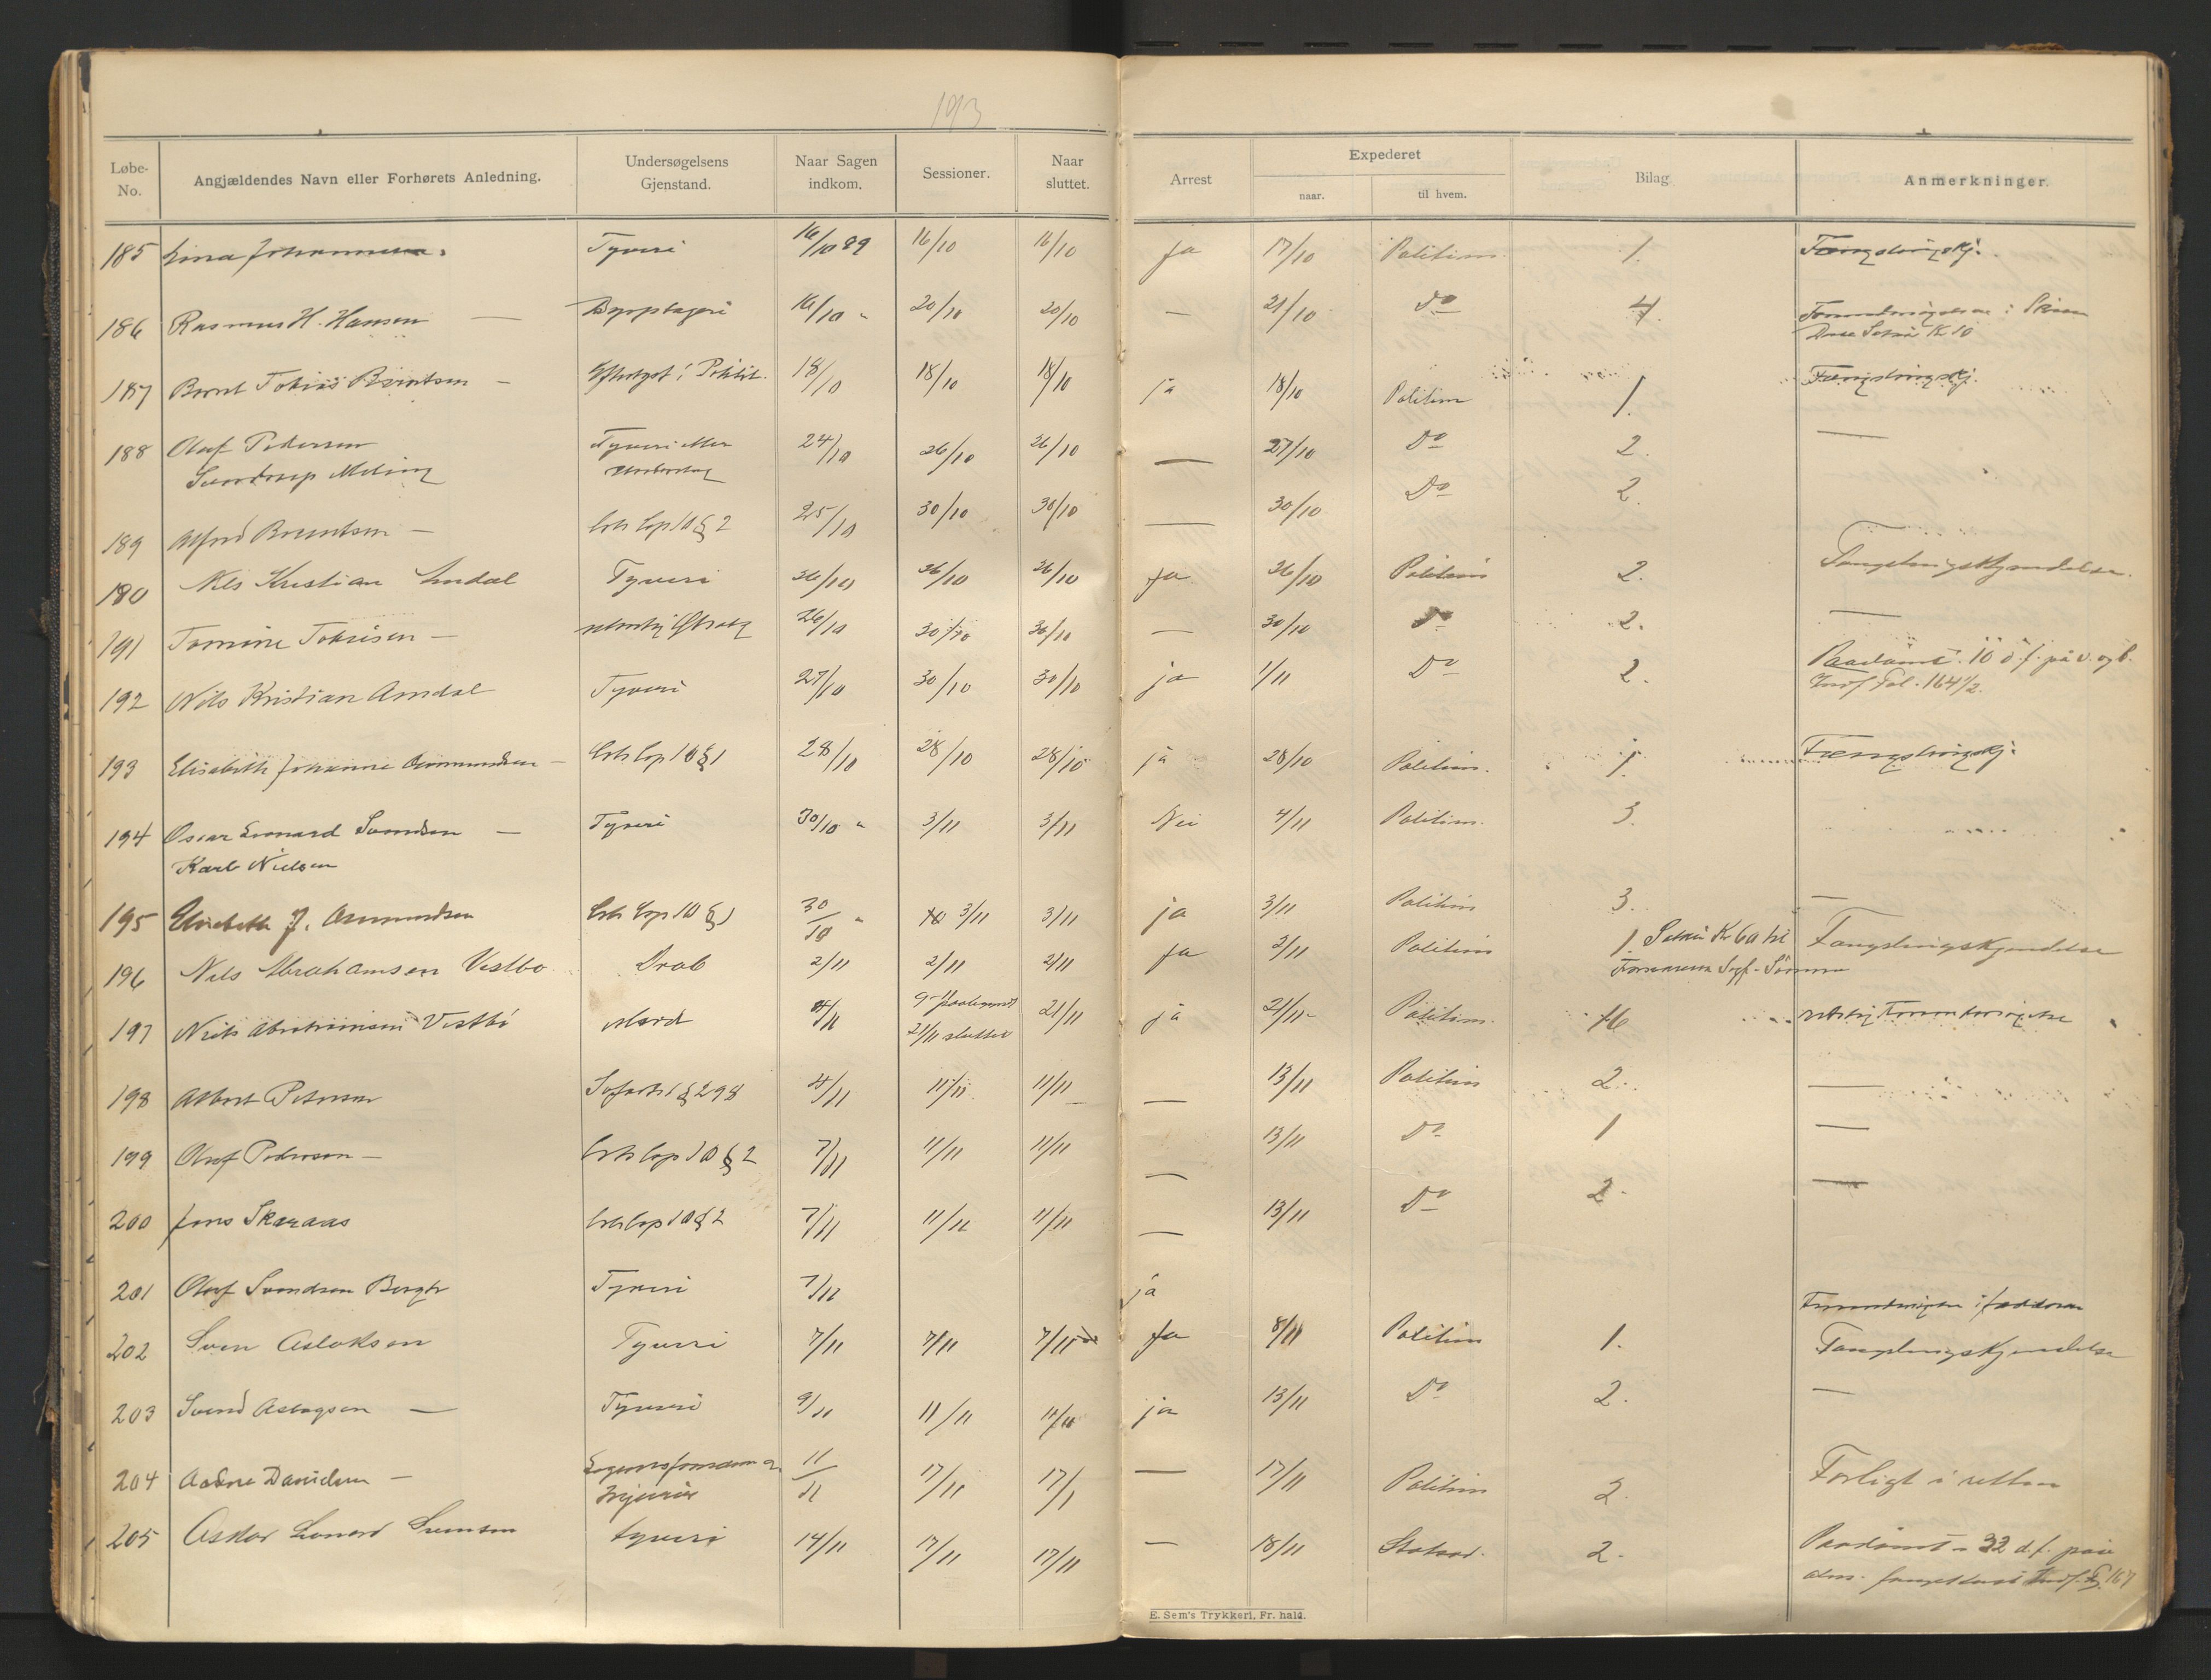 193
Løbe-No. Angjældendes Navn eller Forhørets Anledning. Undersøgelsens Gjenstand. Naar Sagen indkom. Sessioner. Naar sluttet. Arrest Expederet naar. til hvem. Bilag Anmerkninger.
185 Lina Johannesen. Tyveri 16/10 89 16/10 16/10 Ja 17/10 Politim. 1. Fængslingskj.
186 Rasmus H. Hansen — 16/10 " 20/10 20/10 — 21/10 Do 4.
187 Bernt Tobias Berntsen — 18/10 18/10 18/10 ja 18/10 Politim 1. Fængslingskj.
188 Oluf Pedersen Tyveri eller 24/10 26/10 26/10 — 27/10 Do 2. —
Meling
189 Alfred Berntsen — Cap 10 § 2 25/10 30/10 30/10 — 30/10 Do 2.
180 Nils Kristian Tyveri 26/10 26/10 26/10 Ja 26/10 Politim 2. Fængslingskjendelse.
191 Tomine Tobisen — 26/10 30/10 30/10 — 30/10 Do 2. —
192 Nils Kristian Tyveri 27/10 30/10 30/10 ja 1/11 Do 2. Paadømt. 10 d. f. på v. og b.
Fol. 164 1/2.
193 Elisabeth Johanne Osmundsen — Cap 10 § 1 28/10 28/10 28/10 ja 28/10 Politim. 1. Fængslingskj.
194 Oscar Leonard Svendsen — Tyveri 30/10 " 3/11 3/11 Nei 4/11 Politim. 3.
Karl Nielsen
195 Elisabeth J. Osmundsen Cap 10 § 1 30/10 " 3/11 3/11 ja 3/11 Politim 3. —
196 Nils Abrahamsen Vestbø Drab 2/11 2/11 2/11 Ja 2/11 Politim 1. Fængslingskjendelse
197 Niels Abrahamsen Vestbö Mord 4/11 9/11 paabegyndt 21/11 ja 21/11 Politim. 16
21/11 sluttet
198 Albert Petersen § 298 4/11 11/11 11/11 — 13/11 Politim 2. —
199 Oluf Pedersen — Cap 10 § 2 7/11 11/11 11/11 — 13/11 Do 1 —
200 Jens Skaraas Cap 10 § 2 7/11 11/11 11/11 — 13/11 Do 2. —
201 Oluf Svendsen Tyveri 7/11 ja
202 Sven Aslaksen Tyveri 7/11 7/11 7/11 Ja 8/11 Politim 1. Fængslingskjendelse
203 Svend Aslagsen — Tyveri 9/11 11/11 11/11 ja 13/11 Do 2. —
204 Danielsen — 11/11 17/11 17/1 — 17/11 Politim 2. Forligt i retten
Injurier
205 Oskar Leonard Svensen tyveri 14/11 17/11 17/11 — 18/11 2. Paadømt 32 d. f. paa
alm. 167
E. Sem's Trykkeri, Fr. hald.